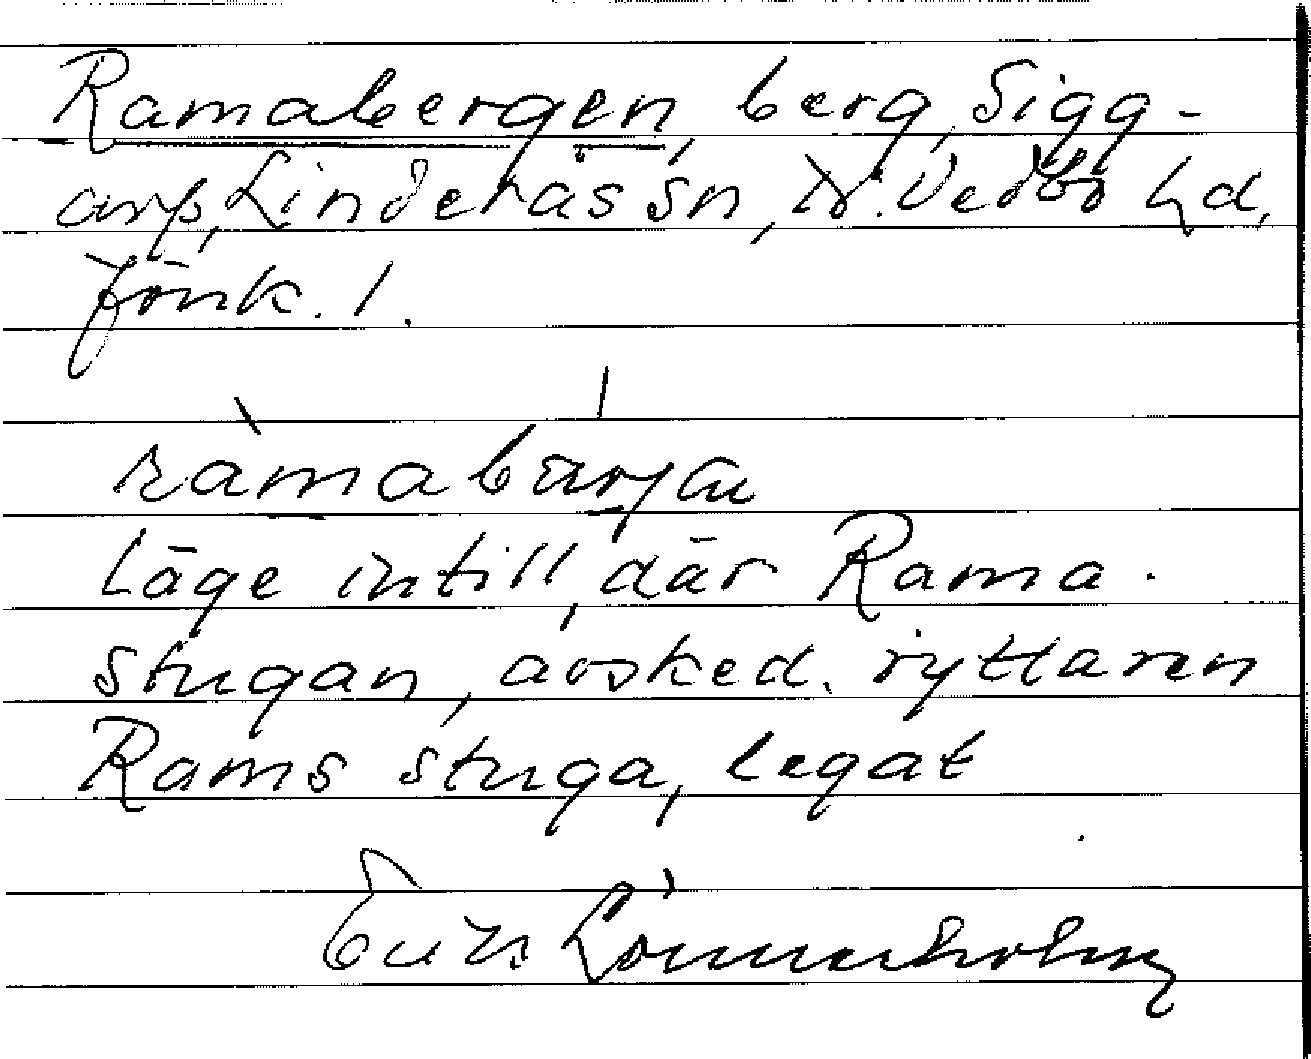 Ramabergen, berg, Sigg-
arp, Linderås sn, N. Vedbo hd,
Jönk. l.
ramabärjan
Läge intill, där Rama-
stugan, avsked. ryttaren
Rams stuga, legat
Lönnerholm